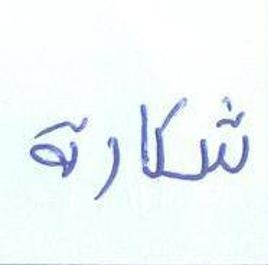 شكارة